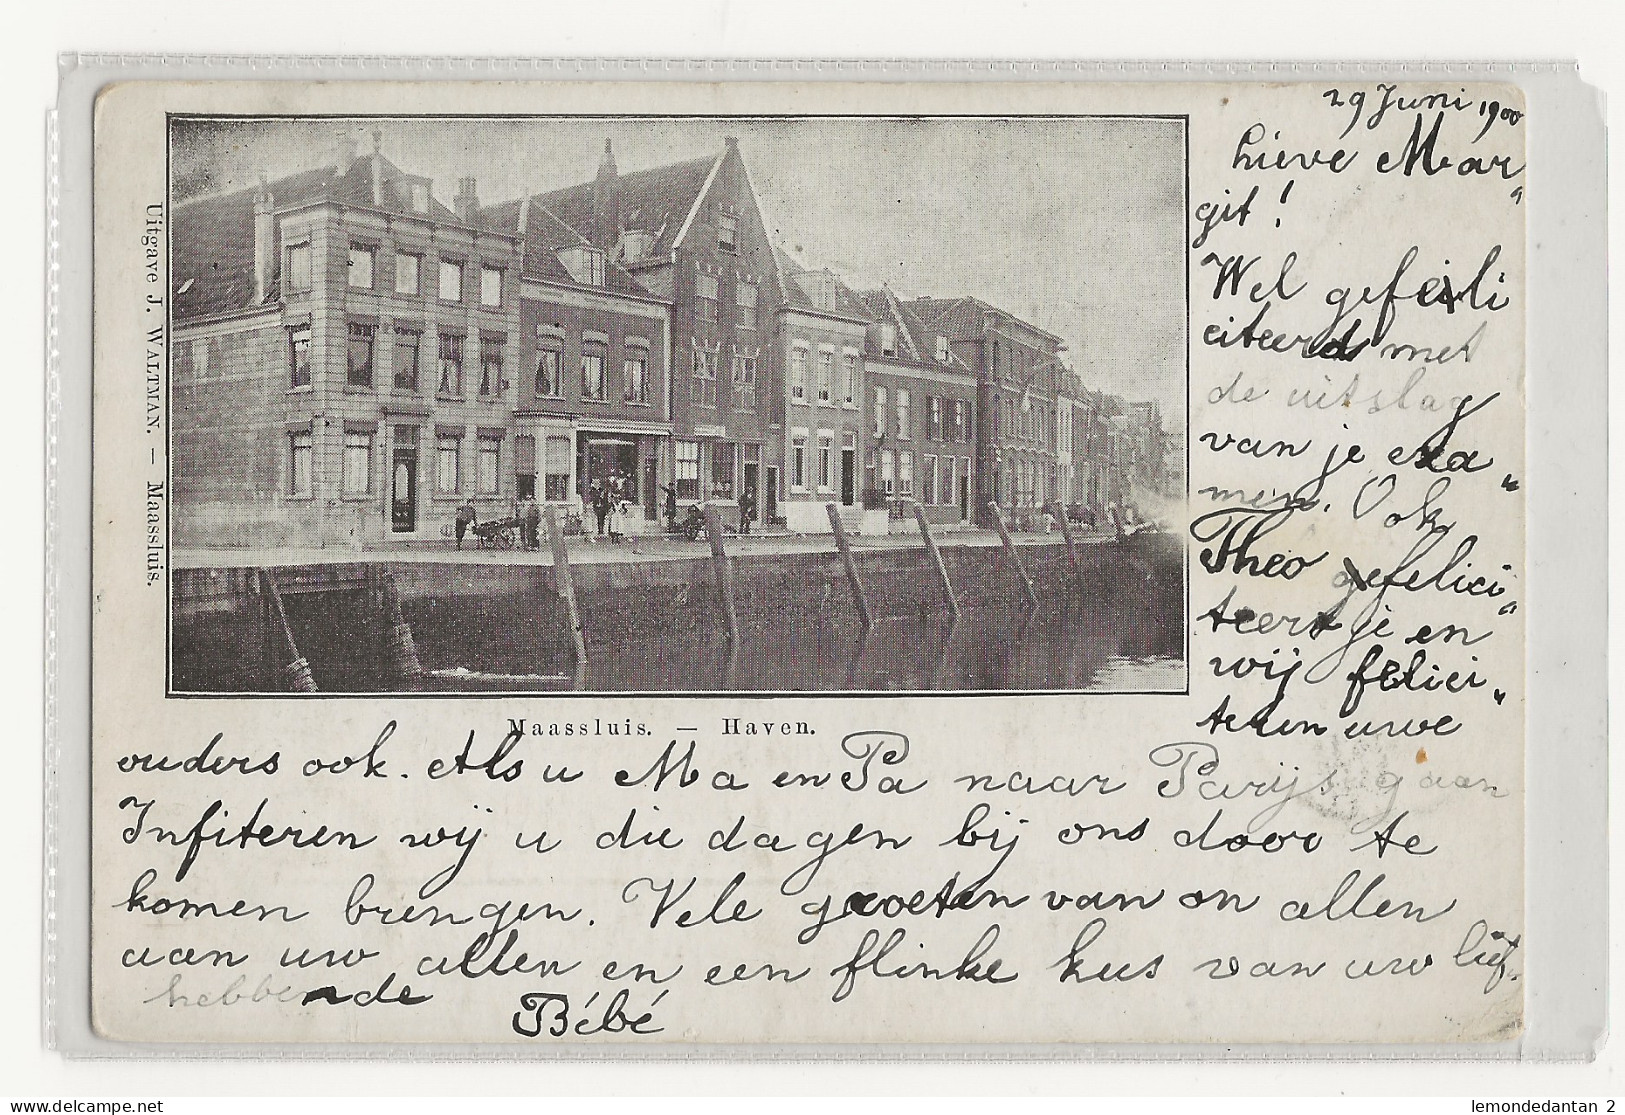 29 Juni 1900
Lieve Mar„
git!
Wel gefeili
citeerds met
de uitslag
van je exa„
men. Ook
Theo gefelici„
teert je en
wij felici„
teren uwe
Uitgave J. WALTMAN. — Maassluis.
Maassluis. — Haven.
ouders ook. Als u Ma en Pa naar Parijs gaan
Infiteren wij u die dagen bij ons door te
komen brengen. Vele groeten van on allen
aan uw allen en een flinke kus van uw lief„
hebbende
Bébé
lemondedantan 2
www.delcampe.net